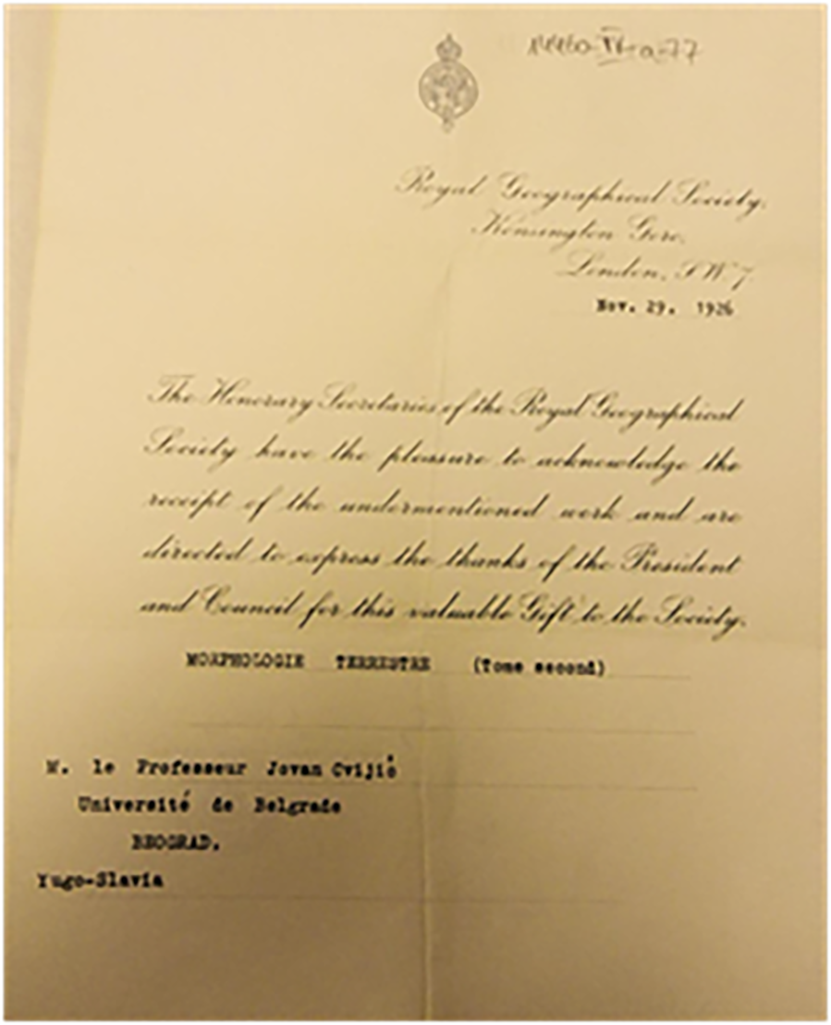 14460-IV-a-77
Royal Geographical Society,
Kensington Gore,
London, S.W.7.
Nov. 29. 1926
The Honorary Secretaries of the Royal Geographical
Society have the pleasure to acknowledge the
receipt of the undermentioned work and are
directed to express the thanks of the President
and Council for this valuable Gift to the Society.
MORPHOLOGIE TERRESTRE (Tome second)
M. le Professeur Jovan Cvijić
Université de Belgrade
BEOGRAD.
Yugo-Slavia